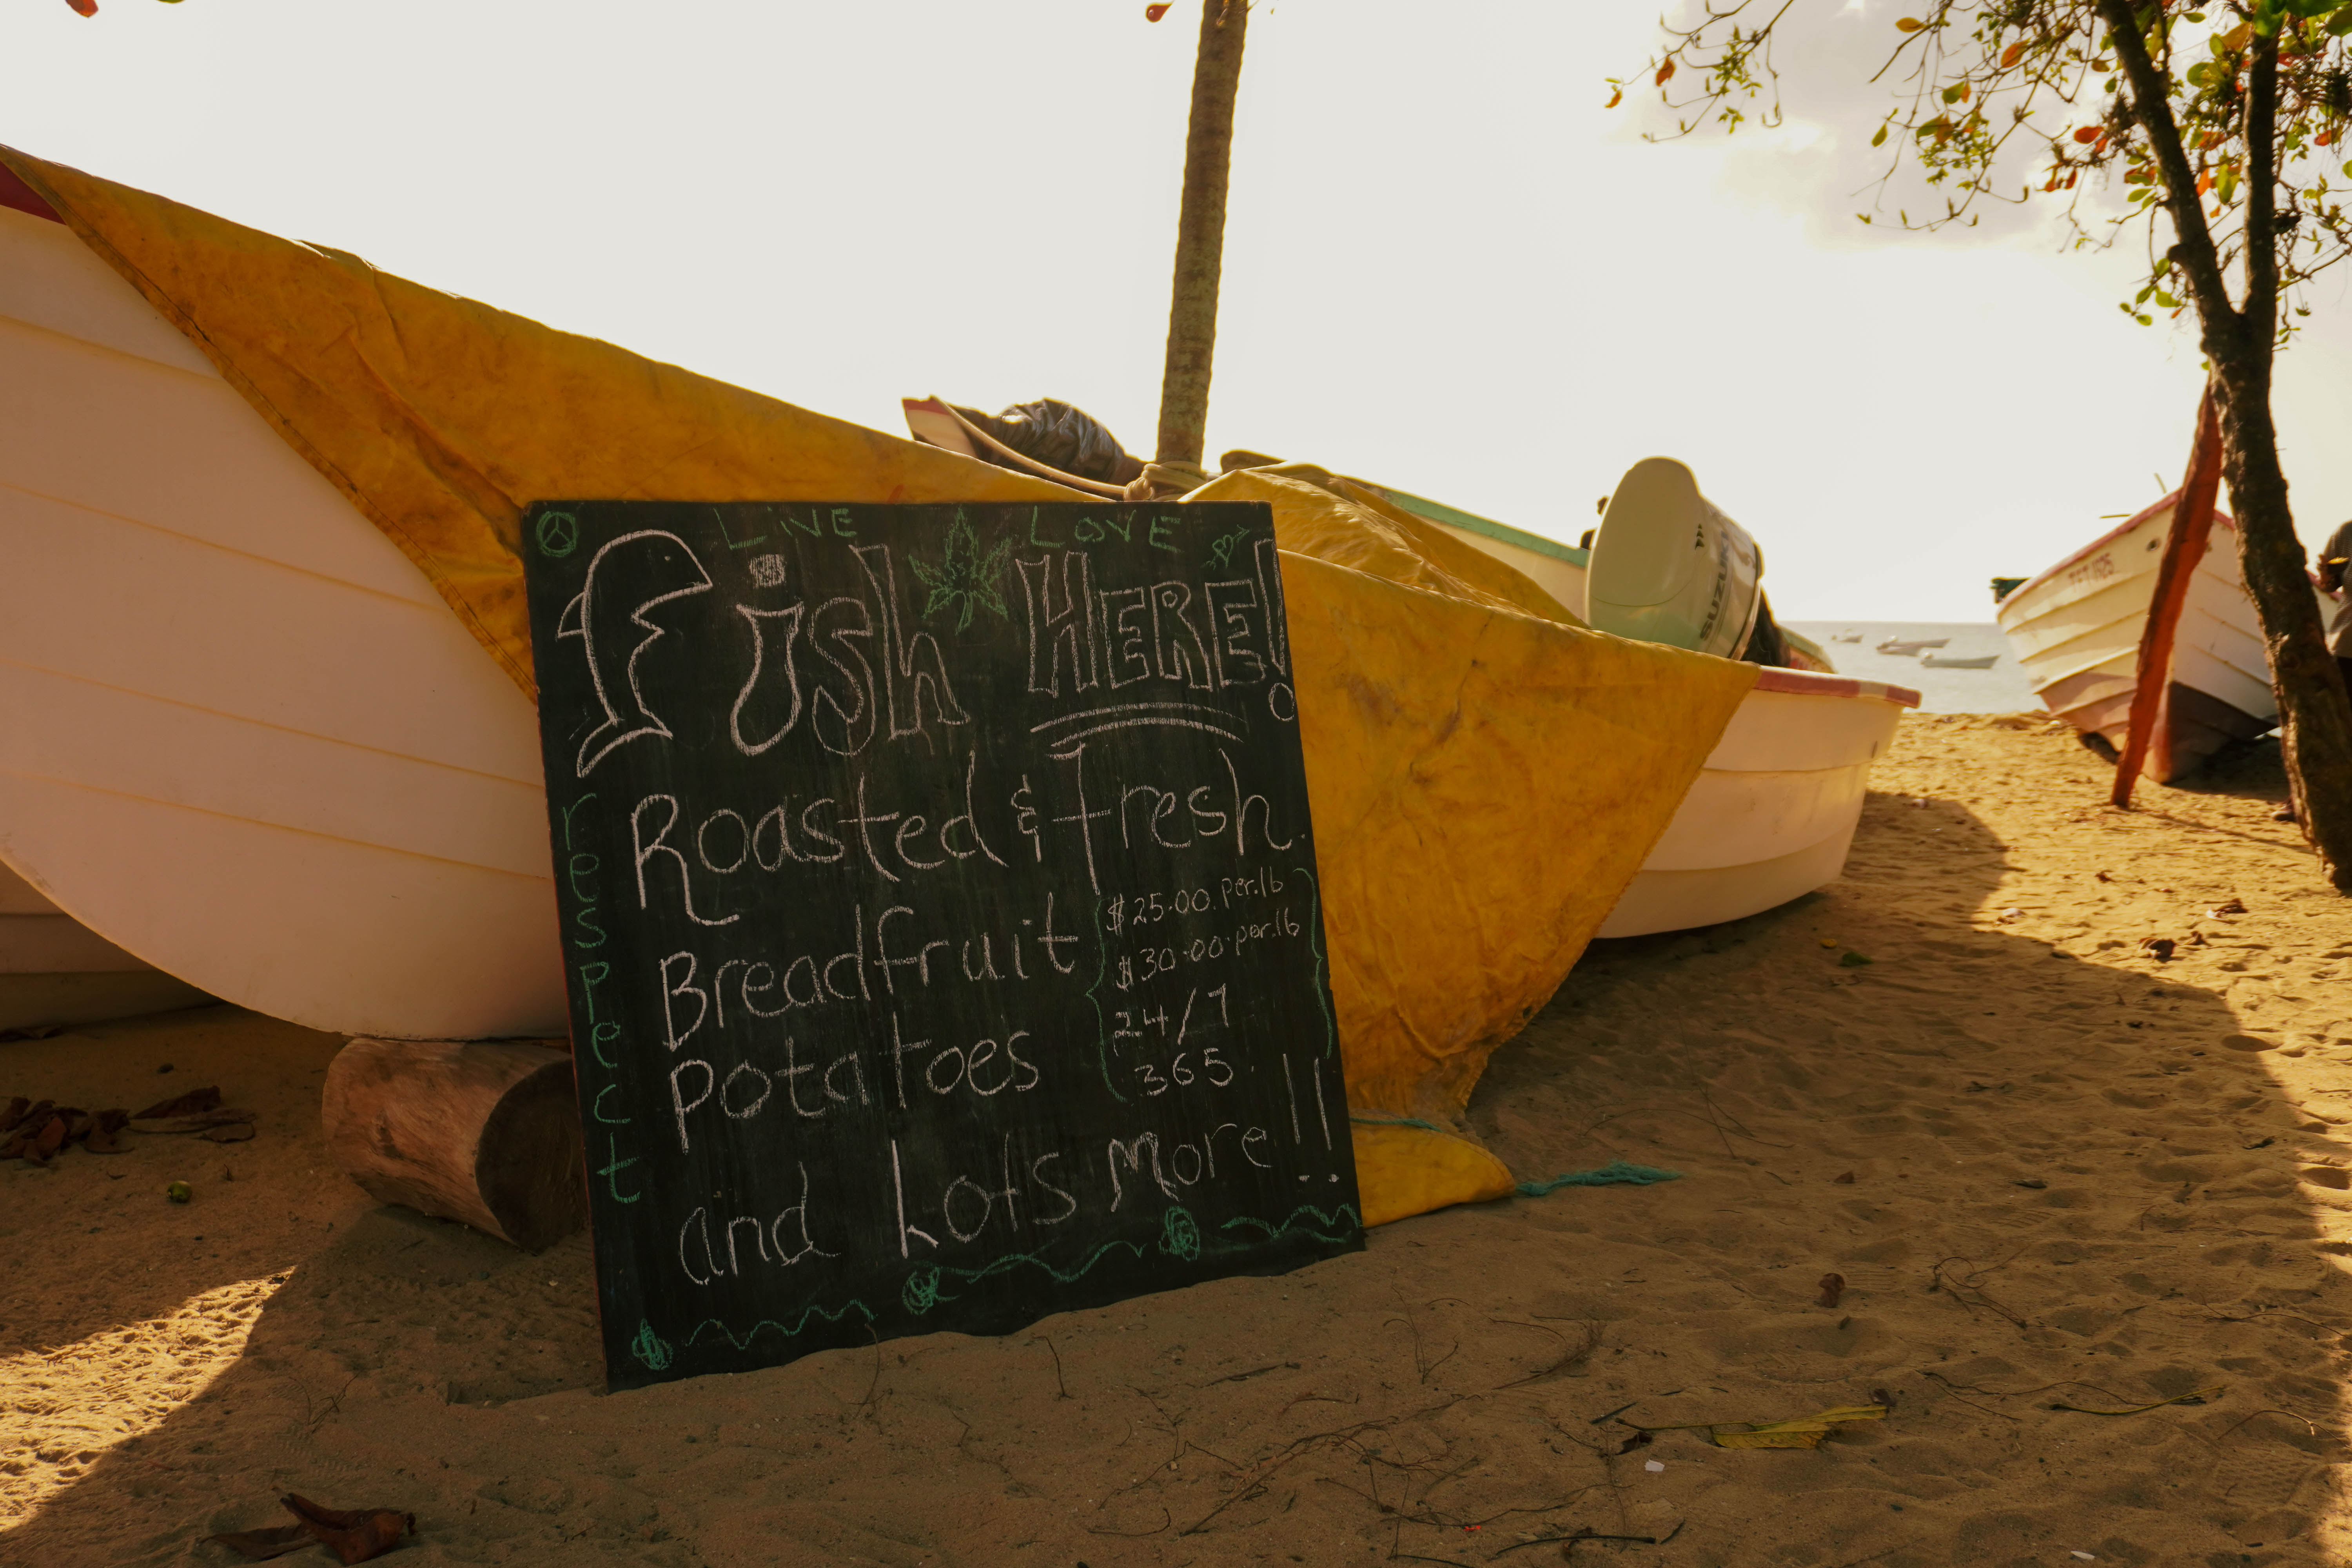 LiVE LOVE
fish HERE!
Roasted & Fresh
Breadfruit
Potatoes
and Lots More!!
$25.00.per.lb
$30.00.per.lb
24/7
365.
respect
SUZUKI